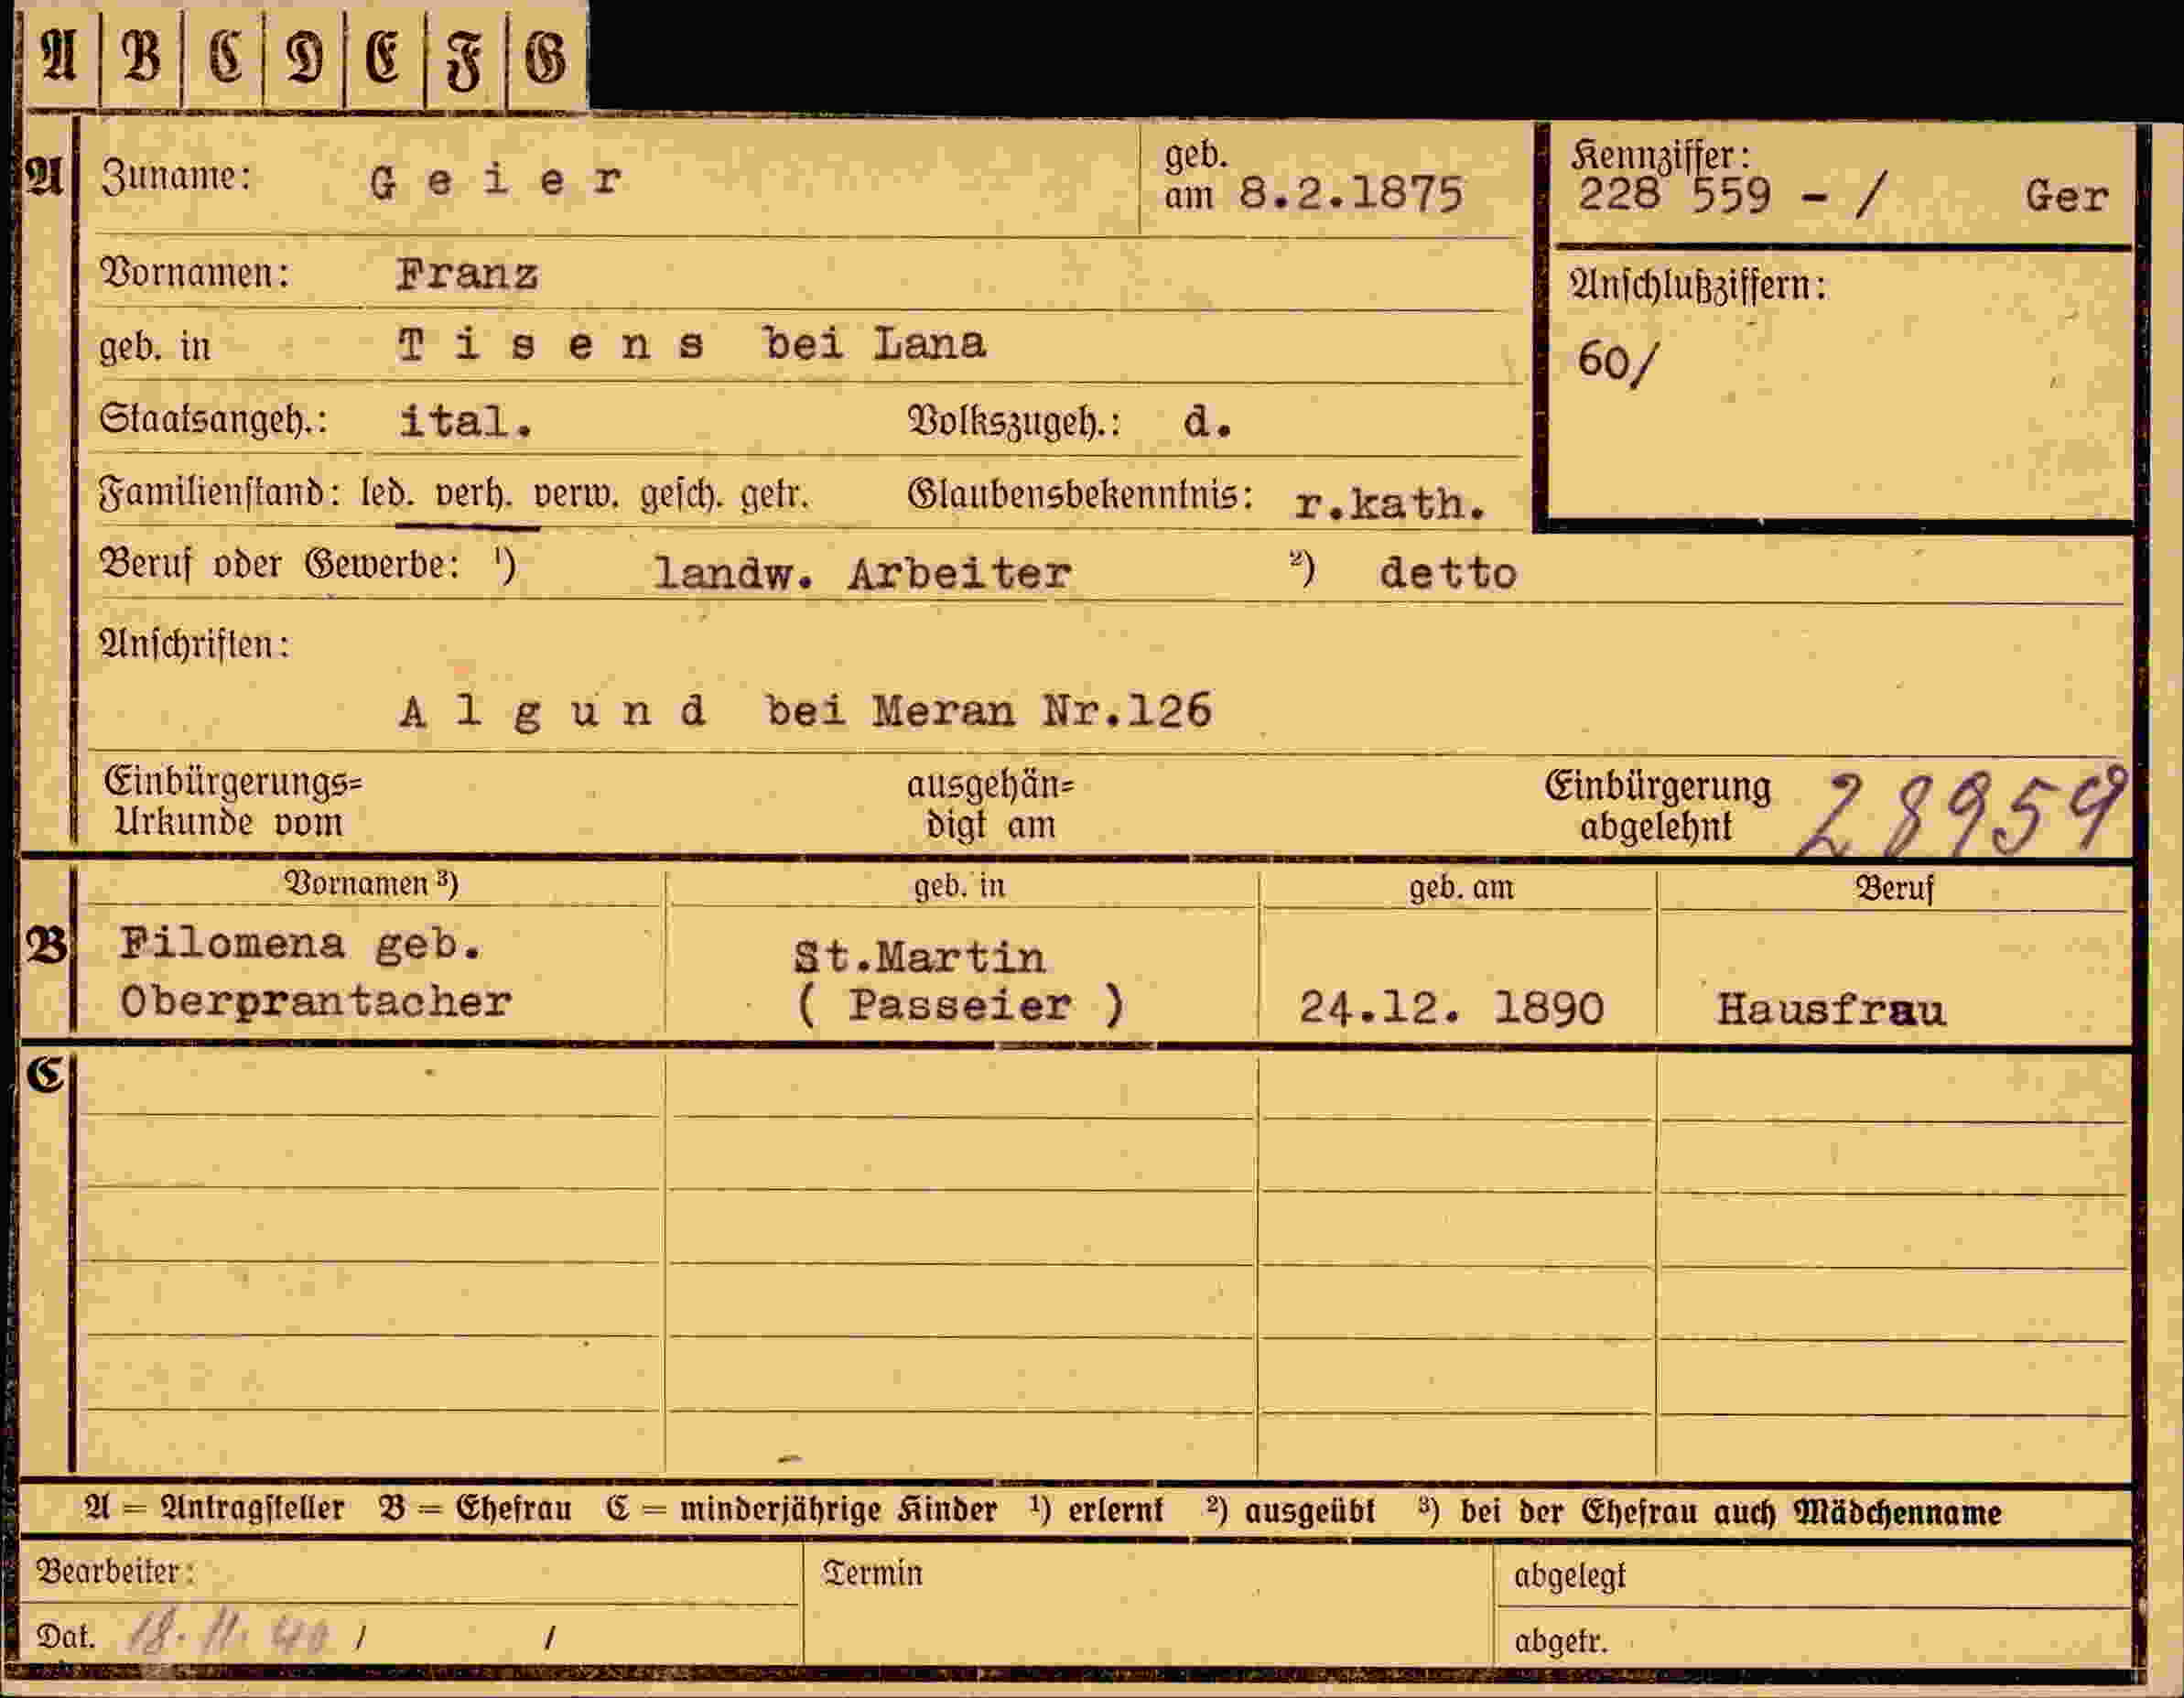 A B C D E F G
A Zuname: Geier geb. am 8.2.1875 Kennziffer: 228 559 - / Ger
Vornamen: Franz
Anschlußziffern:
geb. in Tisens bei Lana
60/
Staatsangeh.: ital. Volkszugeh.: d.
Familienstand: led. verh. verw. gesch. getr. Glaubensbekenntnis: r.kath.
Beruf oder Gewerbe: ¹) landw. Arbeiter ²) detto
Anschriften:
Algund bei Meran Nr.126
Einbürgerungs= ausgehän= Einbürgerung 28959
Urkunde vom digt am abgelehnt
Vornamen ³) geb. in geb. am Beruf
B Filomena geb. St.Martin
Oberprantacher ( Passeier ) 24.12. 1890 Hausfrau
C
A = Antragsteller B = Ehefrau C = minderjährige Kinder ¹) erlernt ²) ausgeübt ³) bei der Ehefrau auch Mädchenname
Bearbeiter: Termin abgelegt
Dat. 18.11.40 / / abgetr.